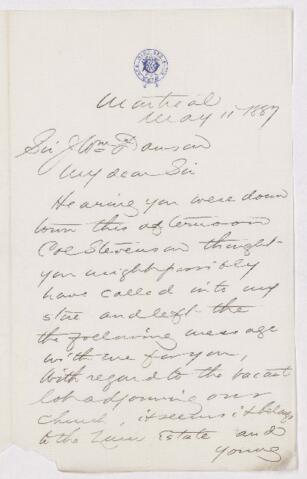 Montreal
May 11 1887
Sir J Wm Dawson
My dear Sir
Hearing you were down
town this afternoon
Col Stevenson thought
you might possibly
have called into my
store and left the
the following message
with me for you,
With regard to the vacant
lot adjoining our
Church, it seems it belongs
to the Estate and
young